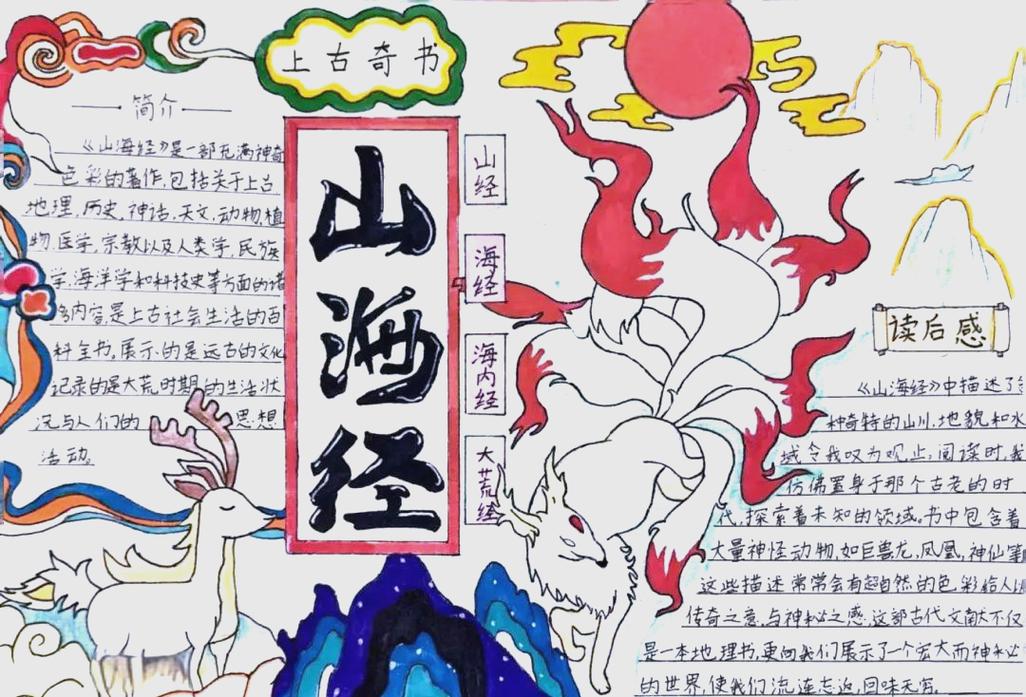 上古奇书
简介
《山海经》是一部充满神奇
色彩的著作,包括关于上古
地理,历史,神话,天文,动物,植
物,医学,宗教以及人类学,民族
学,海洋学和科技史等方面的诸
多内容,是上古社会生活的百
科全书,展示的是远古的文化
记录的是大荒时期的生活状
况与人们的思想
活动。
山海经
山经
海经
海内经
大荒经
读后感
《山海经》中描述了
种奇特的山川,地貌和水
域令我叹为观止,阅读时,我
仿佛置身于那个古老的时
代,探索着未知的领域。书中包含着
大量神怪动物,如巨兽龙,凤凰,神仙等
这些描述常常会有超自然的色彩给人以
传奇之意,与神秘之感.这部古代文献不仅
是一本地理书,更向我们展示了一个宏大而神秘
的世界,使我们流连忘返,回味无穷